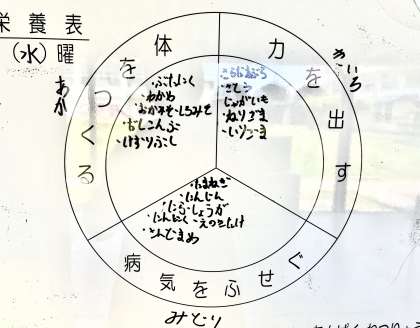 栄養表
(水)曜
体をつくる
あか
・ぶたにく
・わかめ
・あかみそ・しろみそ
・だしこんぶ
・けずりぶし
力を出す
きいろ
・さとう
・じゃがいも
・ねりごま
・いりごま
病気をふせぐ
みどり
・たまねぎ
・にんじん
・にら・しょうが
・にんにく・えのきたけ
・えだまめ